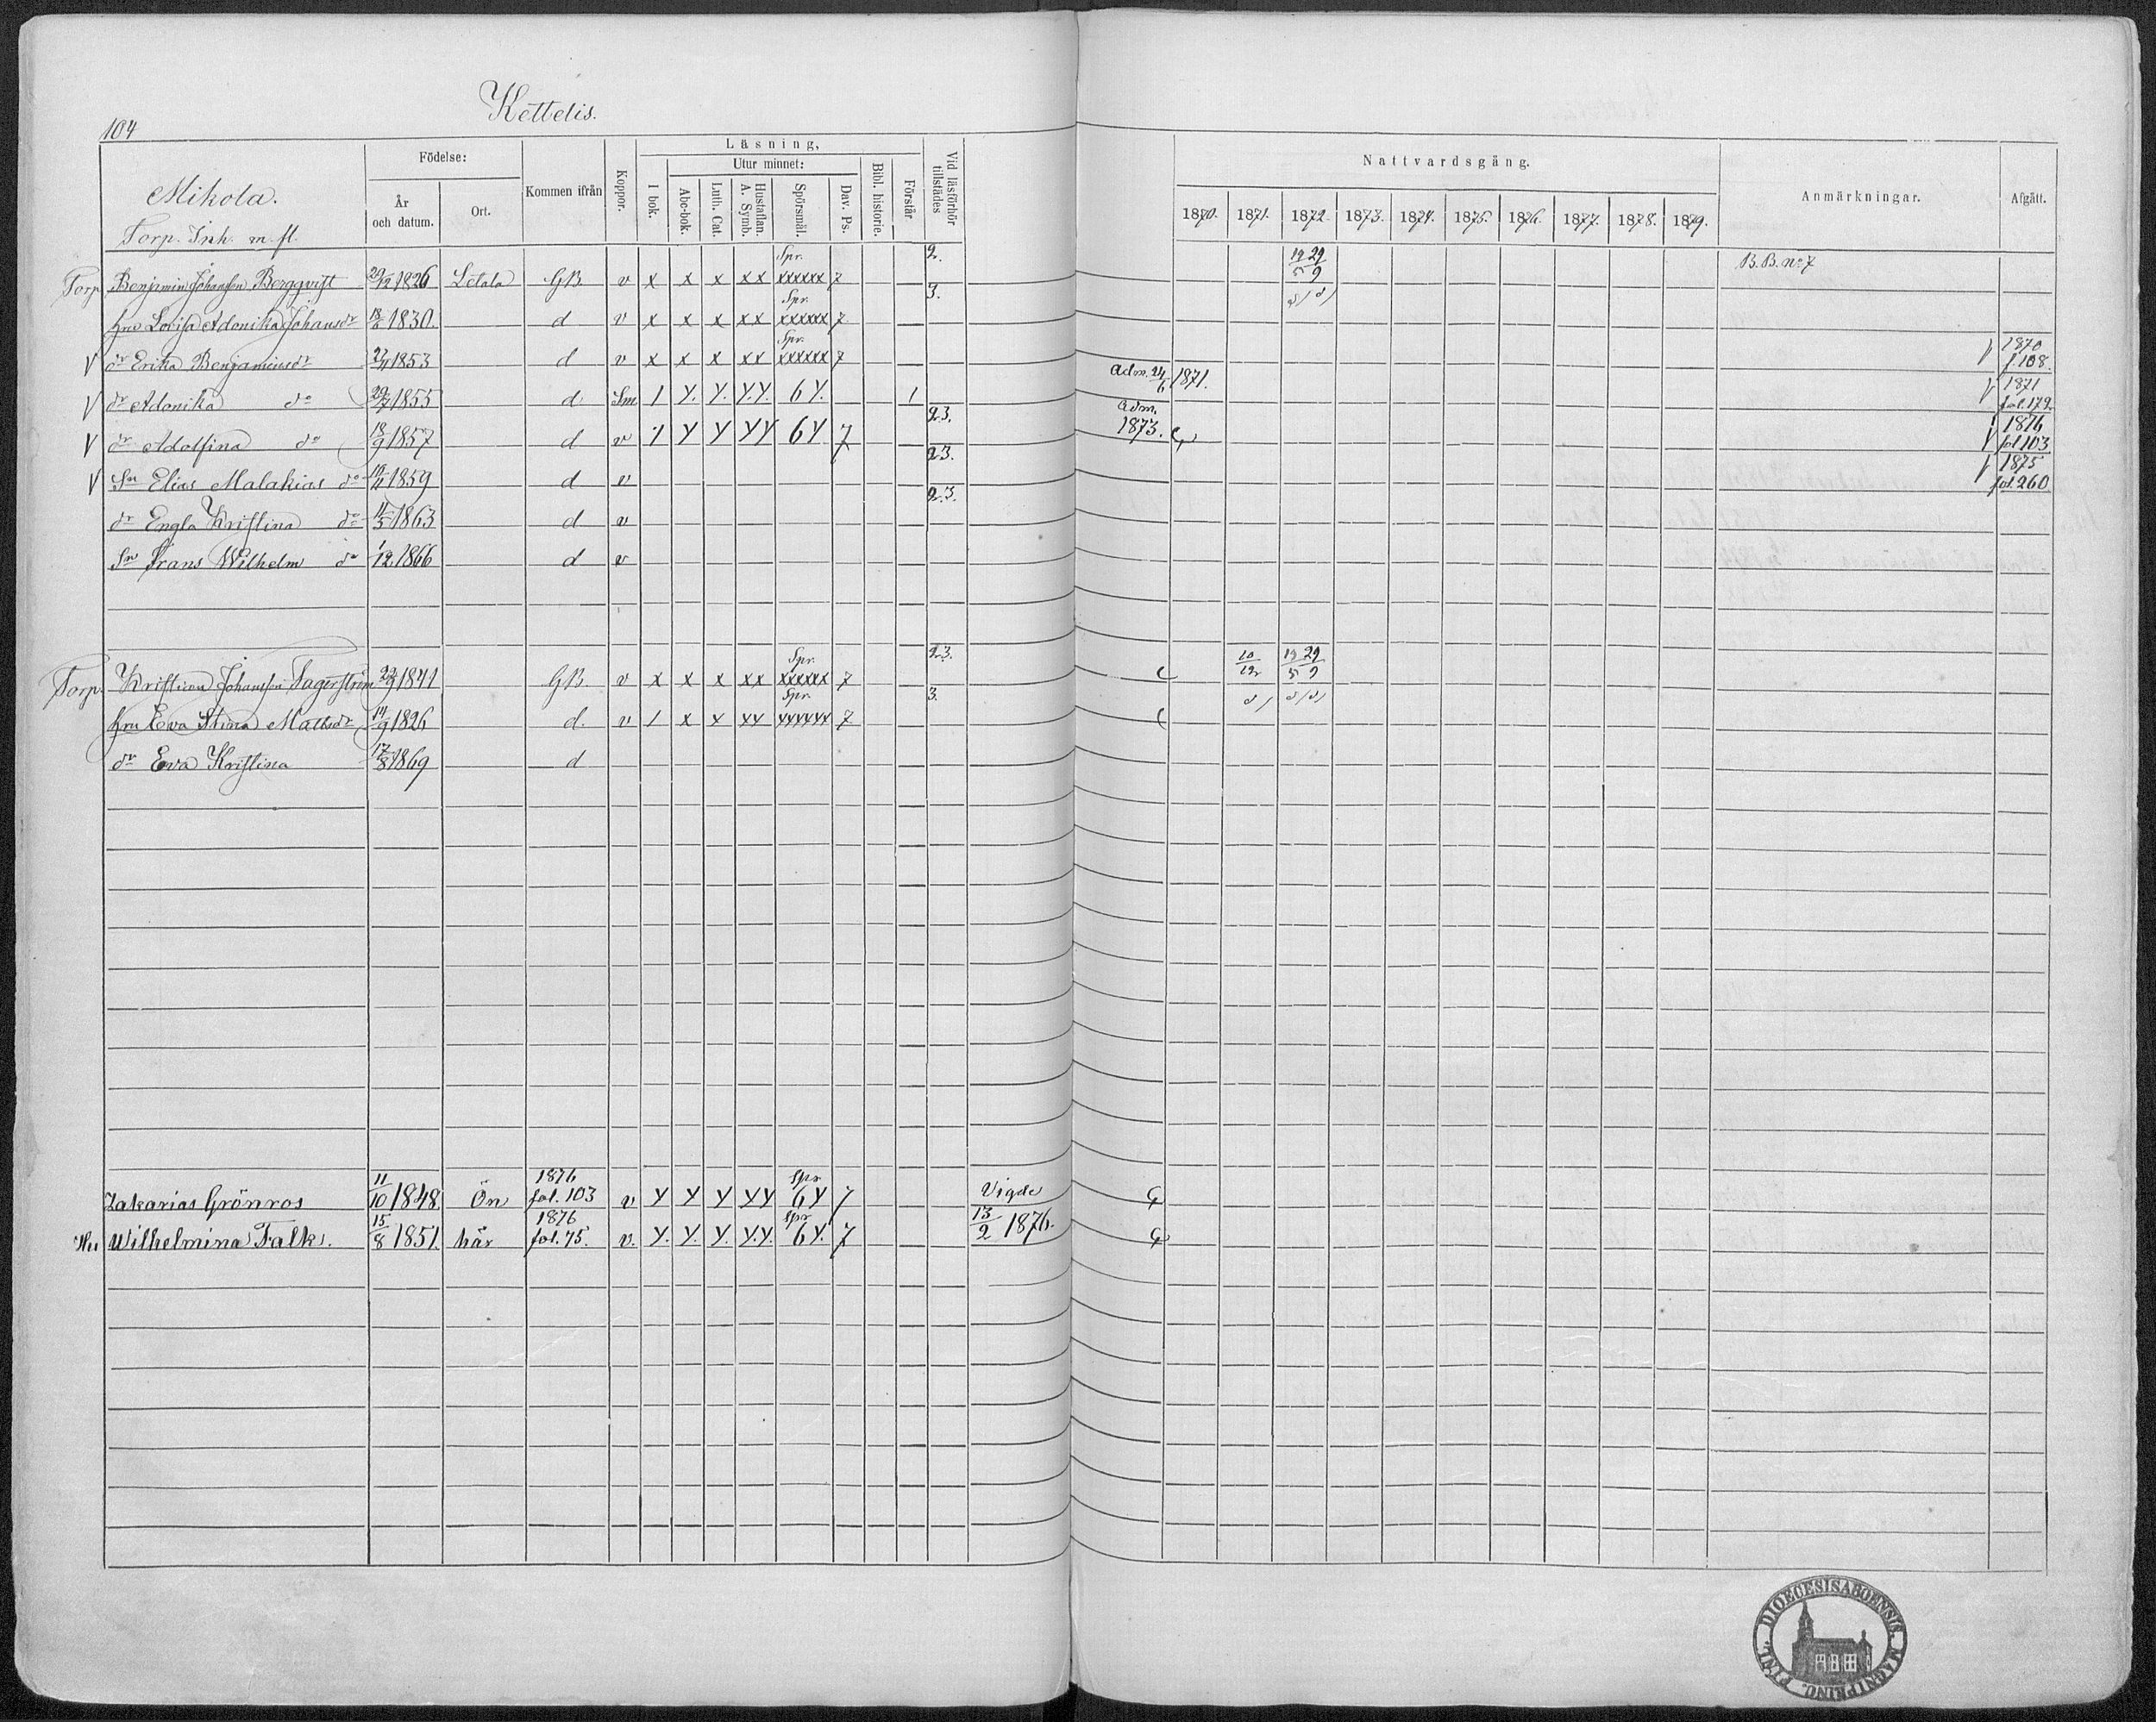 Kettelis.
104
Mikola.
Torp. Inh. m. fl.
Födelse:
År och datum.
Ort.
Kommen ifrån
Koppor.
Läsning,
I bok.
Utur minnet:
Abc-bok.
Luth. Cat.
Hustaflan. A. Symb.
Spörsmål.
Dav. Ps.
Bibl. historie.
Förstår
Vid läsförhör tillstädes
Nattvardsgång.
1870. 1871. 1872. 1873. 1874. 1875. 1876. 1877. 1878. 1879.
Anmärkningar.
Afgått.
Torp Benjamin Johansson Bergqvist 29/12 1826 Letala GB. v x x x xx Spr. xxxxxx 7 2. 19/5 29/9 B.B. no 7
hru Lovisa Adonika Johansdr 18/6 1830. d v x x x xx Spr. xxxxxx 7 3.
V dr Erika Benjaminsdr 1853 d v x x x xx Spr. xxxxxx 7 1870 f. 108.
V dr Adonika do 1855 d Sm 1 Y. Y. Y.Y. 6Y. 1 Adm. 24/6 1871. 1871 fol. 179.
V dr Adolfina do 18/9 1857 d v 1 Y Y YY 6Y 7 2.3. Adm. 1873. 1876 fol. 103
V Sn Elias Malakias do 1859 d v 2.3. 1875 fol. 260
dr Engla Kristina do 11/5 1863 d v 2.3.
Sn Frans Wilhelm do 1/12 1866 d v
Torp. Kristian Johansson Fagerström 29/9 1841 GB. v x x x xx Spr. xxxxxx 7 2.3. 10/12 19/5 29/9
hru Eva Stina Mattsdr 14/9 1826 d v 1 x x xx Spr. xxxxxx 7 3.
dr Eva Kristina 17/8 1869 d
Zakarias Grönros 11/10 1848 Ön 1876 fol. 103 v Y Y Y YY Spr 6Y 7 Vigde
Hu Wilhelmina Falk. 15/8 1851. här 1876 fol. 75. v. Y. Y. Y. Y.Y. Spr 6Y. 7 13/2 1876.
DIOECESIS ABOENSIS. MAGNI PRINC. FINL.